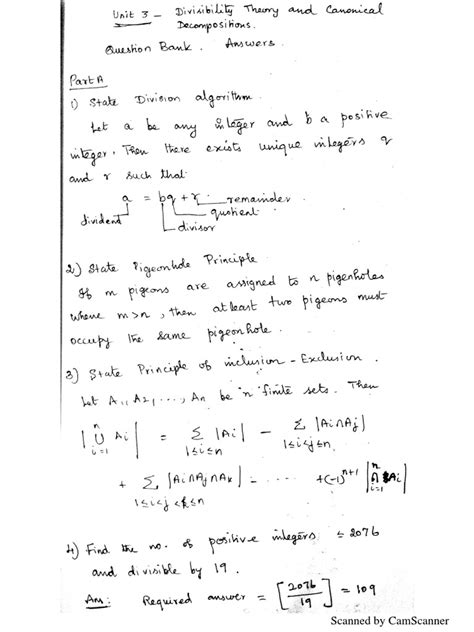 Unit 3 - Divisibility Theory and Canonical
Decompositions.
Question Bank. Answers.
Part A
1) State Division algorithm.
Let a be any integer and b a positive
integer. Then there exists unique integers q
and r such that
a = bq + r remainder
dividend quotient
divisor
2) State Pigeonhole Principle
If m pigeons are assigned to n pigenholes
where m>n, then atleast two pigeons must
occupy the same pigeonhole.
3) State Principle of inclusion - Exclusion.
Let A1, A2, ..., An be 'n' finite sets. Then
|∪ i=1 n Ai| = Σ 1≤i≤n |Ai| - Σ 1≤i<j≤n |Ai∩Aj|
+ Σ 1≤i<j<k≤n |Ai∩Aj∩Ak| - .... +(-1)^n+1 |∩ i=1 n Ai|
4) Find the no. of positive integers ≤ 2076
and divisible by 19.
Ans: Required answer = [2076/19] = 109
Scanned by CamScanner